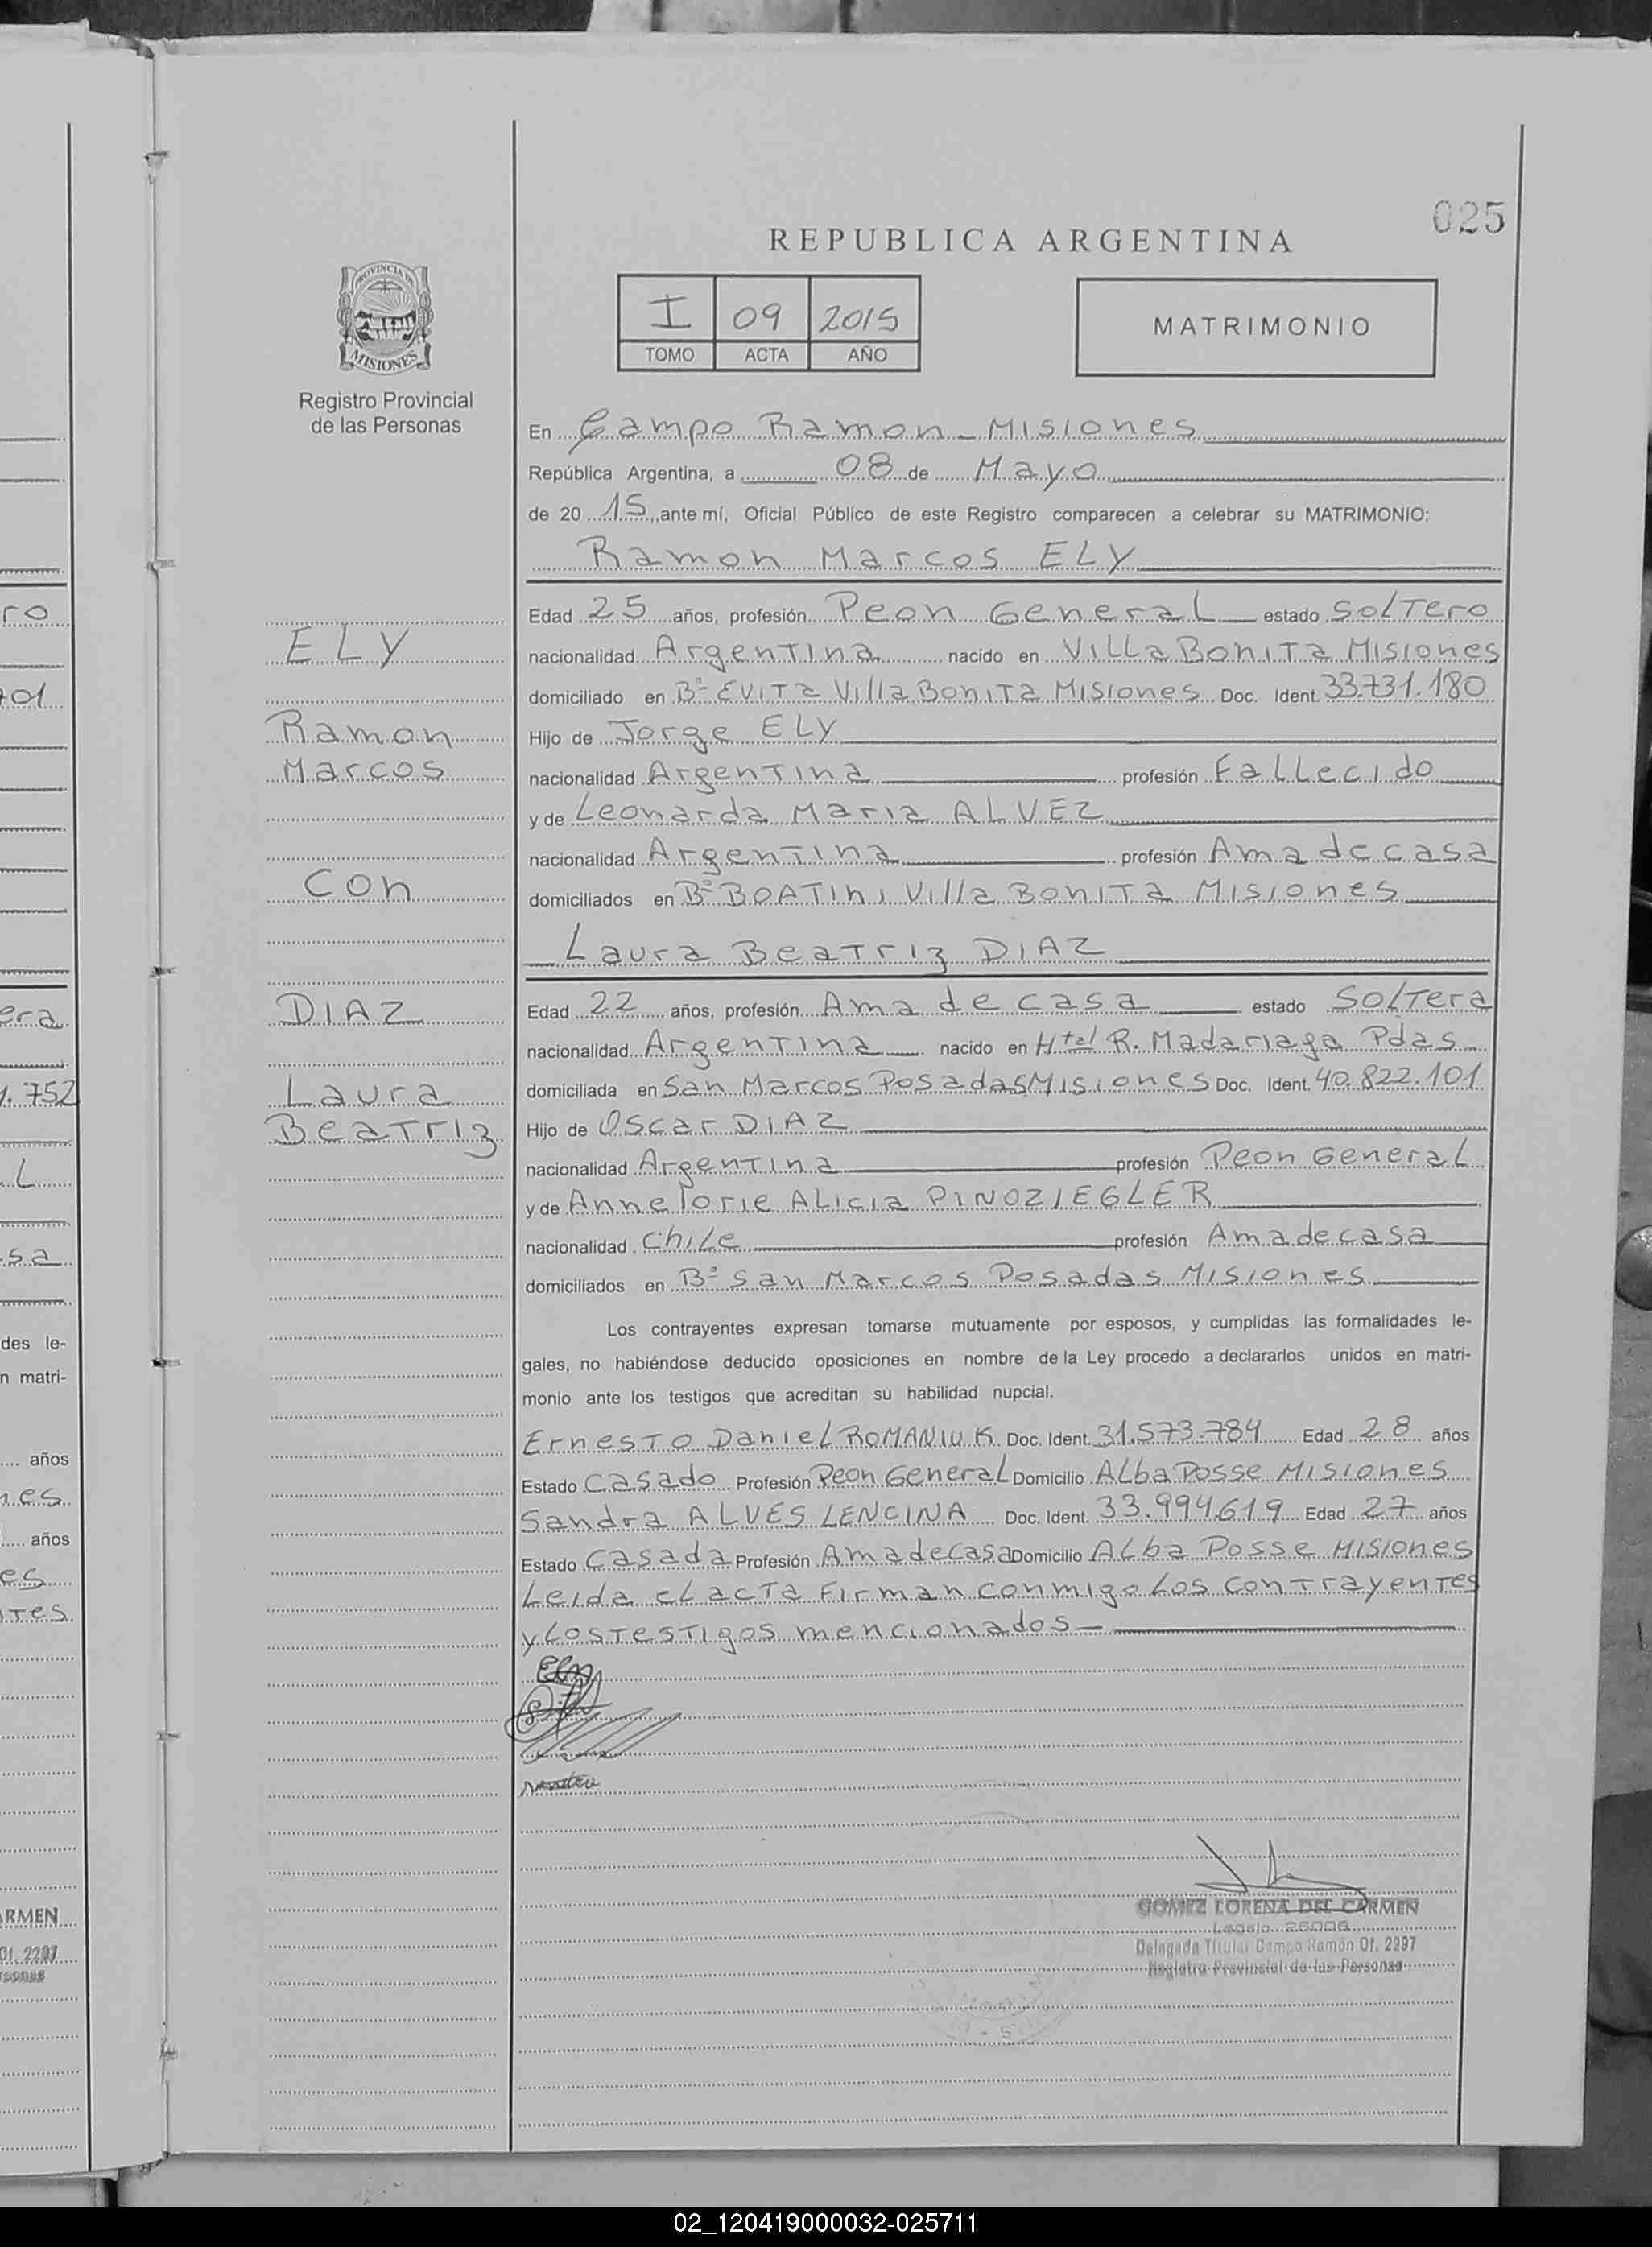 025
REPUBLICA ARGENTINA
PROVINCIA DE
MISIONES
Registro Provincial
de las Personas
I 09 2015
TOMO ACTA AÑO
MATRIMONIO
En Campo Ramon - Misiones
República Argentina, a 08 de Mayo
de 20 15, ante mí, Oficial Público de este Registro comparecen a celebrar su MATRIMONIO:
Ramon Marcos ELY
Edad 25 años, profesión Peon General estado Soltero
ELY
nacionalidad Argentina nacido en Villa Bonita Misiones
domiciliado en Bº Evita Villa Bonita Misiones Doc. Ident. 33.731.180
Ramon
Hijo de Jorge ELY
Marcos
nacionalidad Argentina profesión Fallecido
y de Leonarda Maria ALVEZ
nacionalidad Argentina profesión Ama de casa
con
domiciliados en Bº BOATini Villa Bonita Misiones
Laura Beatriz DIAZ
DIAZ
Edad 22 años, profesión Ama de casa estado Soltera
nacionalidad Argentina nacido en Htal R. Madariaga Pdas
Laura
domiciliada en San Marcos Posadas Misiones Doc. Ident. 40.822.101
Beatriz
Hijo de Oscar DIAZ
nacionalidad Argentina profesión Peon General
y de Annelorie Alicia PINO ZIEGLER
nacionalidad Chile profesión Ama de casa
domiciliados en Bº San Marcos Posadas Misiones
Los contrayentes expresan tomarse mutuamente por esposos, y cumplidas las formalidades le-
gales, no habiéndose deducido oposiciones en nombre de la Ley procedo a declararlos unidos en matri-
monio ante los testigos que acreditan su habilidad nupcial.
Ernesto Daniel ROMANIUK Doc. Ident. 31.573.784 Edad 28 años
Estado Casado Profesión Peon General Domicilio Alba Posse Misiones
Sandra ALVES LENCINA Doc. Ident. 33.994.619 Edad 27 años
Estado Casada Profesión Ama de Casa Domicilio Alba Posse Misiones
Leida el acta Firman conmigo los contrayentes
y los testigos mencionados -
Ely
GOMEZ LORENA DEL CARMEN
Legajo 26006
Delegada Titular Campo Ramón Of. 2297
Registro Provincial de las Personas
ro
701
era
1.752
L
sa
des le-
n matri-
años
nes
años
es
ntes
ARMEN
Of. 2297
rsonas
02_120419000032-025711